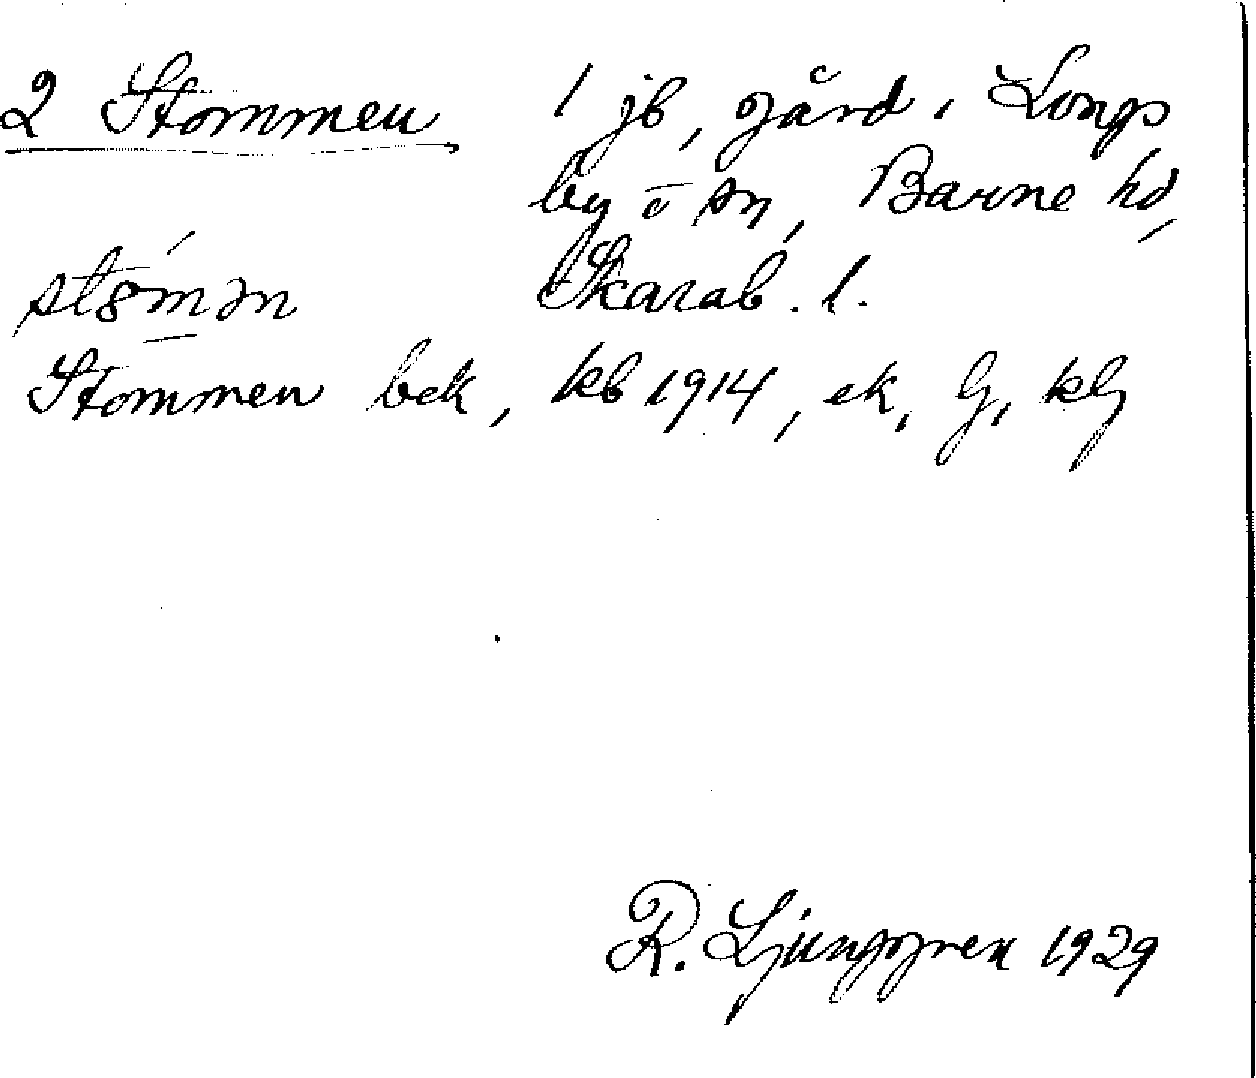 2 Stommen 1 jb, gård i Longs
by o sn, Barne hd,
st8mən Skarab. l.
Stommen bek, kb 1914, ek, G, klg
R. Ljunggren 1929